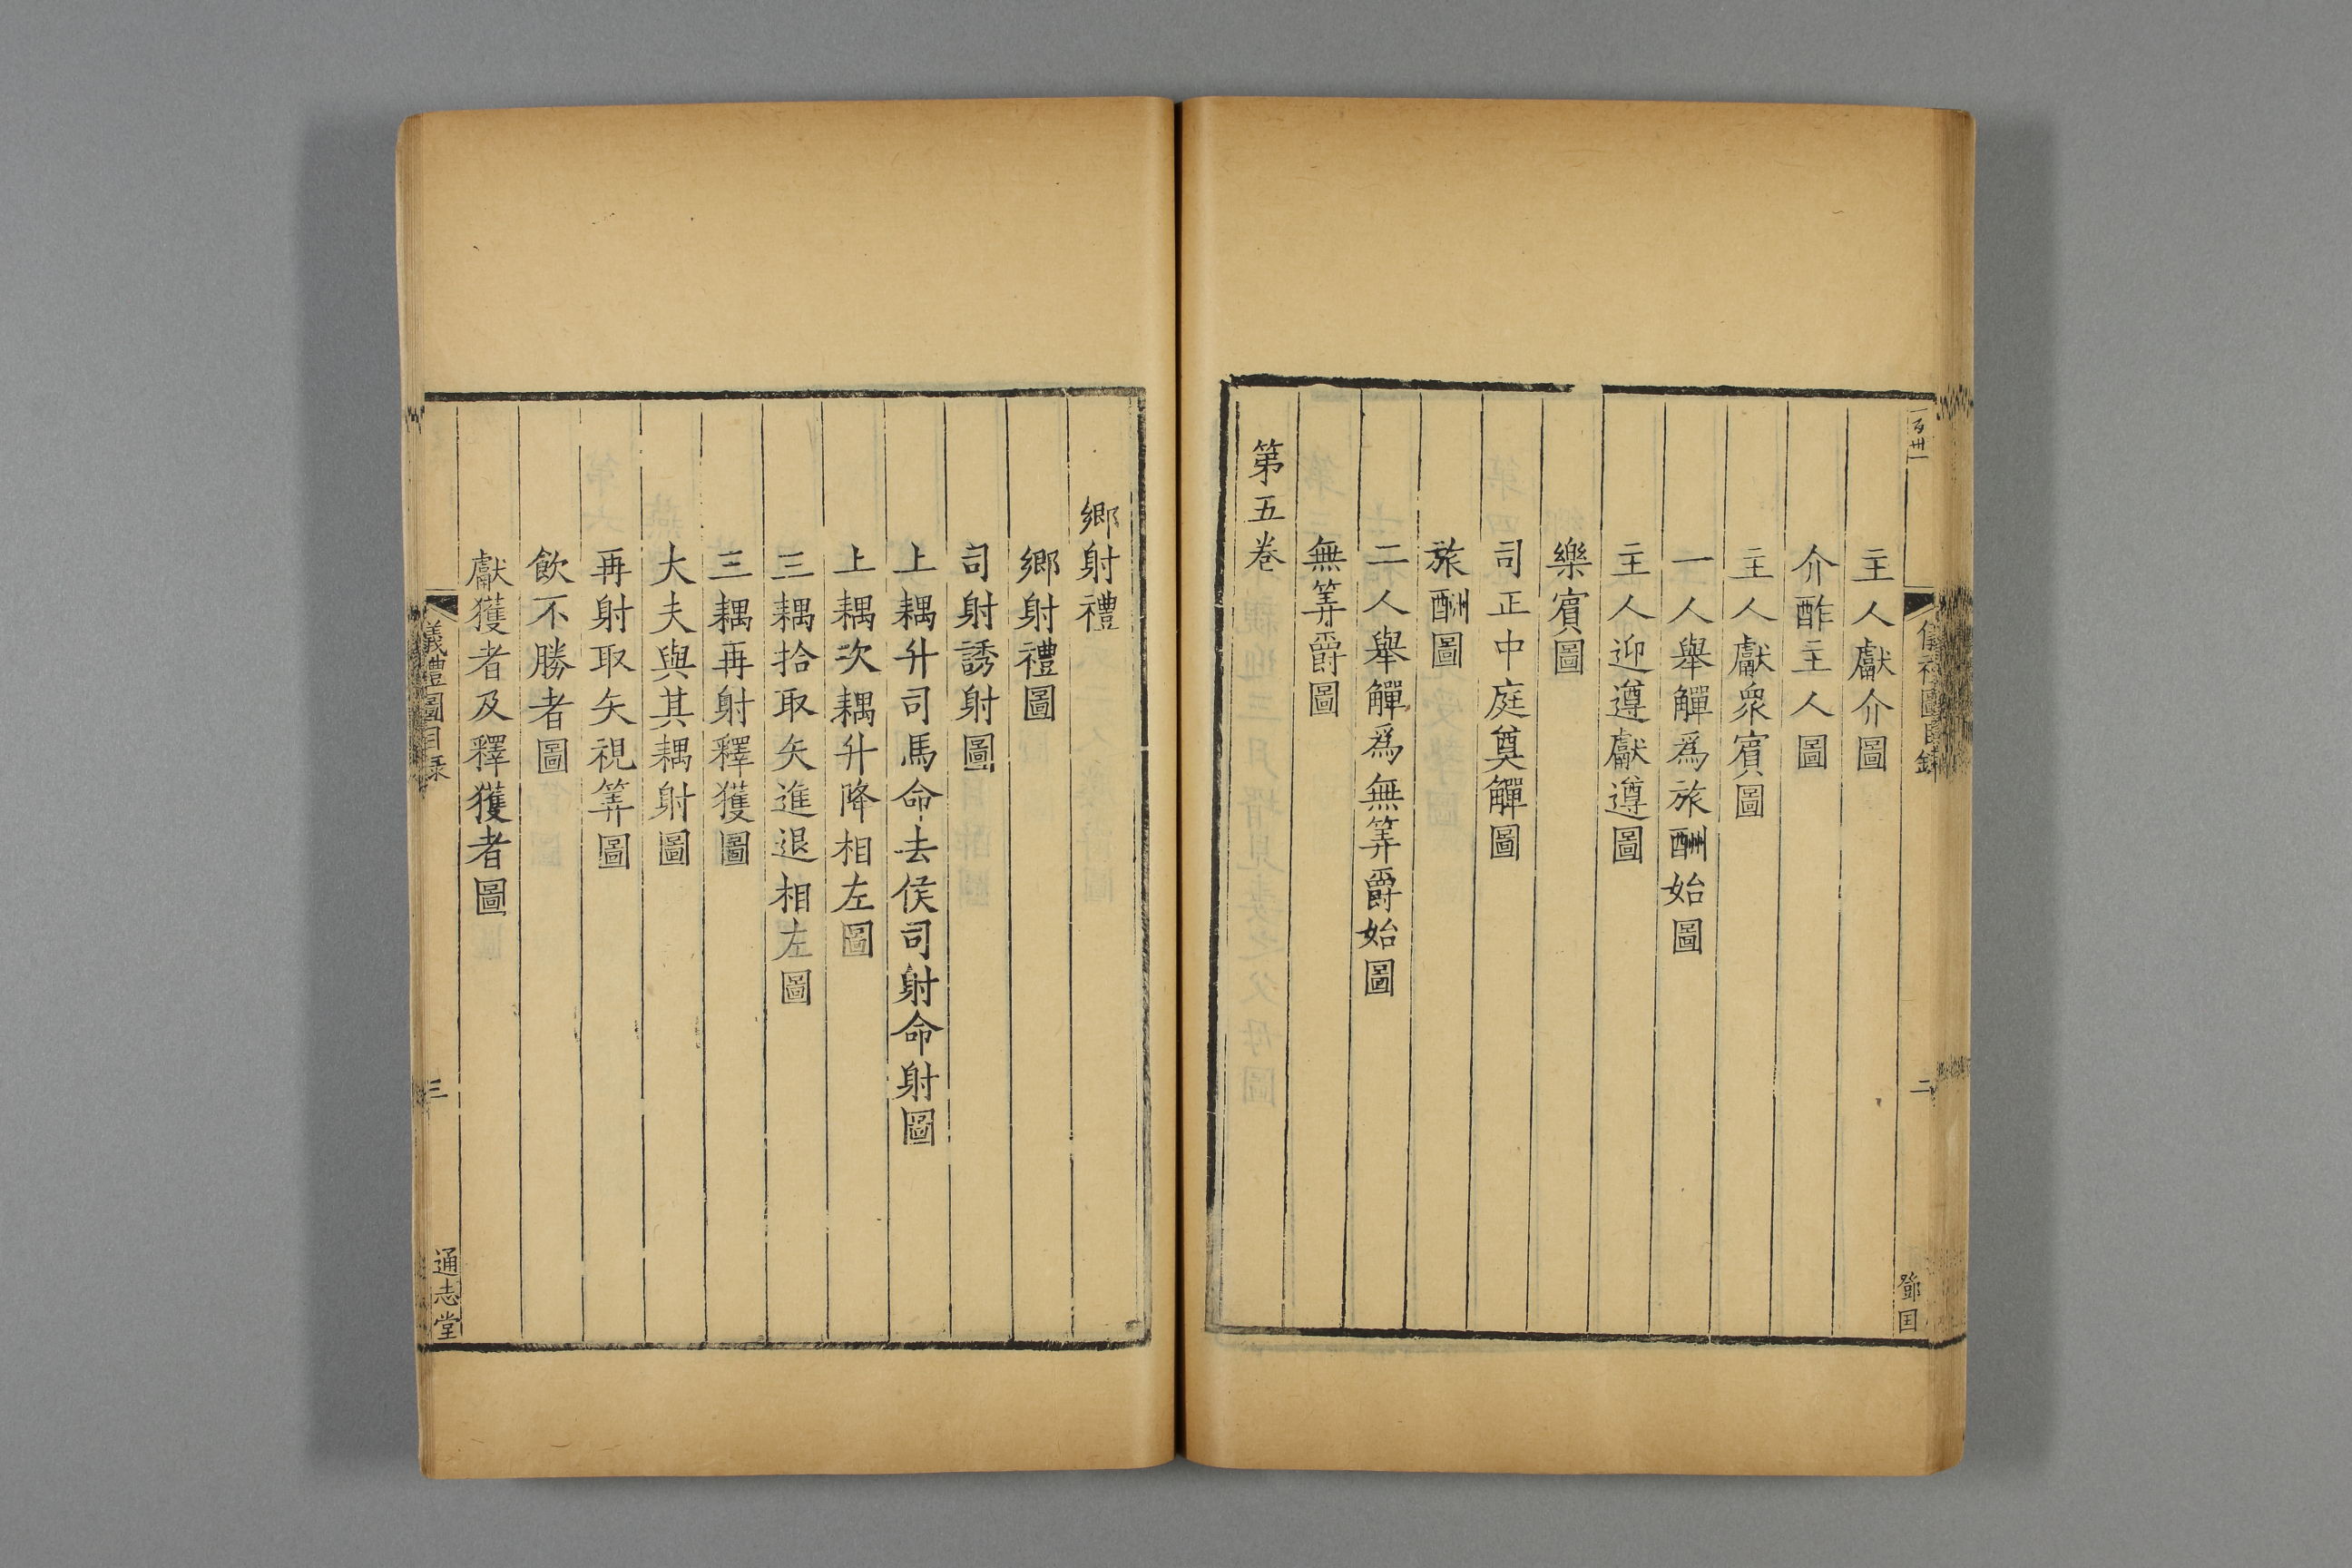 主人獻介圖
介酢主人圖
主人獻衆賓圖
一人舉觶爲旅酬始圖
主人迎遵獻遵圖
樂賓圖
司正中庭奠觶圖
旅酬圖
二人舉觶爲無筭爵始圖
無筭爵圖
第五卷
儀禮圖目錄
二
鄧国
鄉射禮
鄉射禮圖
司射誘射圖
上耦升司馬命去侯司射命射圖
上耦次耦升降相左圖
三耦拾取矢進退相左圖
三耦再射釋獲圖
大夫與其耦射圖
再射取矢視筭圖
飲不勝者圖
獻獲者及釋獲者圖
儀禮圖目錄
三
通志堂